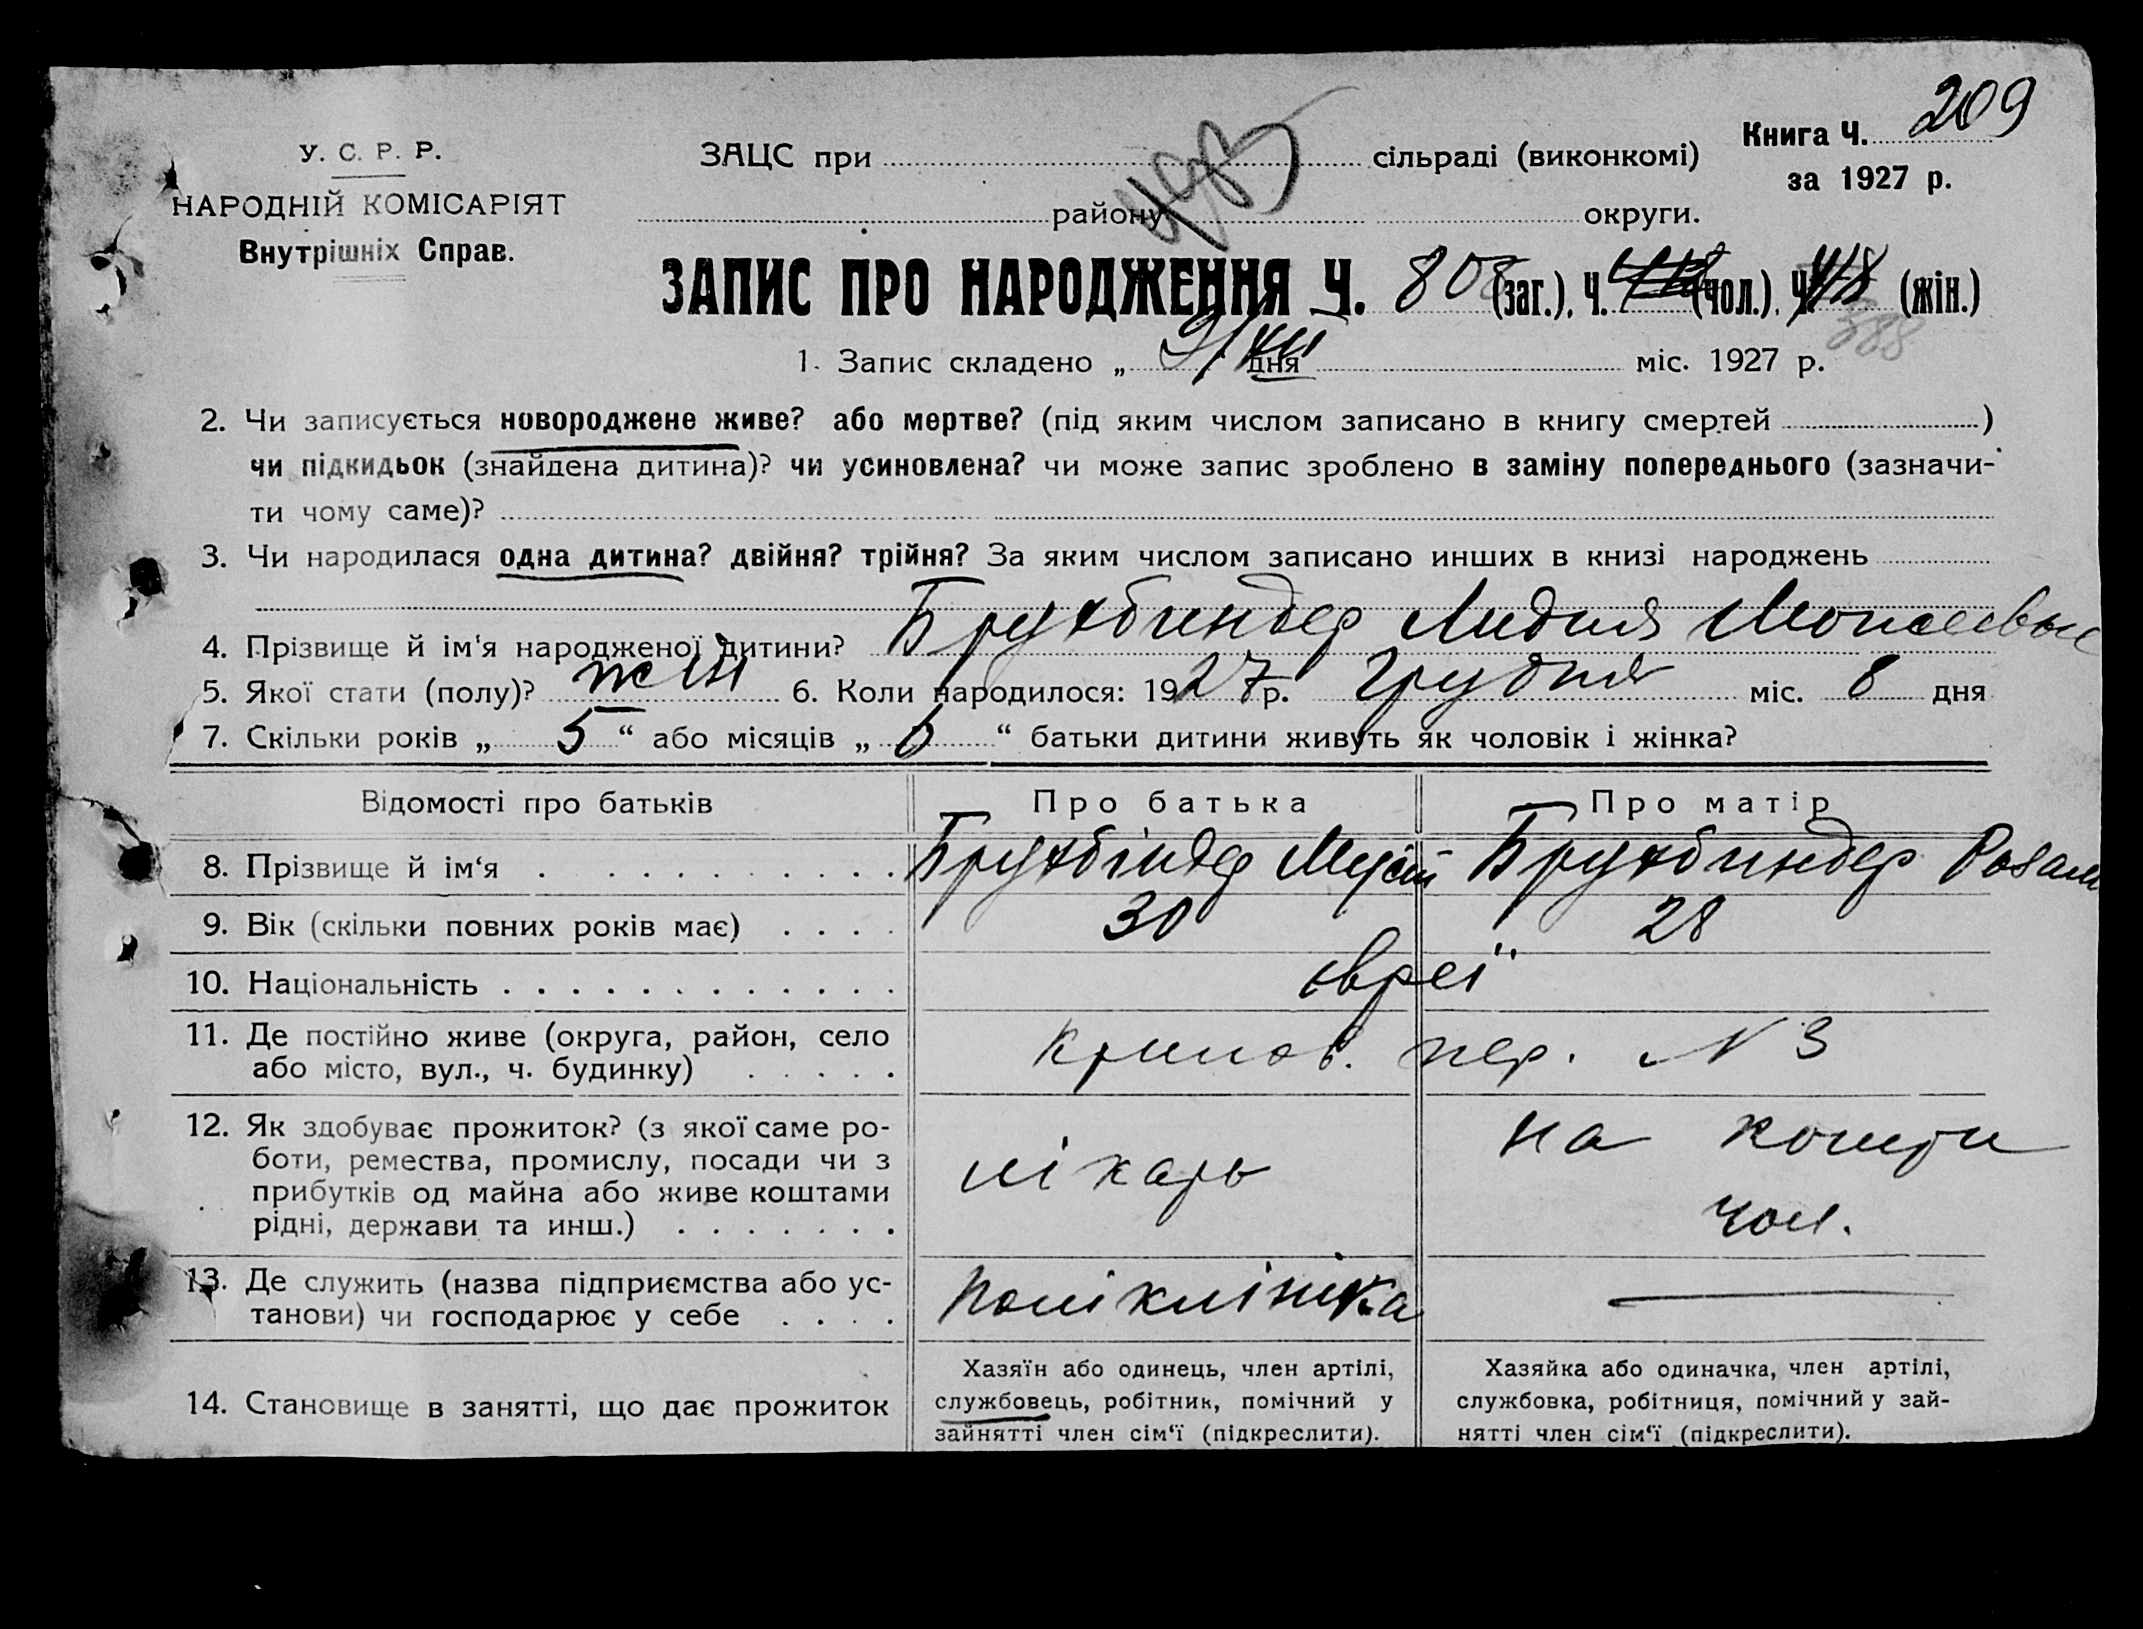 209
У. С. Р. Р.
ЗАЦС при сільраді (виконкомі)
Книга Ч.
за 1927 р.
НАРОДНІЙ КОМІСАРІЯТ
району округи.
Внутрішніх Справ.
ЗАПИС ПРО НАРОДЖЕННЯ Ч. 808 (заг.), Ч. (чол.), Ч. 418 (жін.)
388
1. Запис складено „ 9/XII дня міс. 1927 р.
2. Чи записується новороджене живе? або мертве? (під яким числом записано в книгу смертей )
чи підкидьок (знайдена дитина)? чи усиновлена? чи може запис зроблено в заміну попереднього (зазначи-
ти чому саме)?
3. Чи народилася одна дитина? двійня? трійня? За яким числом записано инших в книзі народжень
4. Прізвище й ім'я народженої дитини? Брухбиндер Лидия Моисеевна
5. Якої стати (полу)? жін 6. Коли народилося: 1927 р. Грудня міс. 8 дня
7. Скільки років „ 5 “ або місяців „ 6 “ батьки дитини живуть як чоловік і жінка?
Відомості про батьків Про батька Про матір
8. Прізвище й ім‘я Брухбіндер Мусій Брухбиндер
9. Вік (скільки повних років має) 30 28
10. Національність євреї
11. Де постійно живе (округа, район, село
або місто, вул., ч. будинку) пер. N 3
12. Як здобуває прожиток? (з якої саме ро-
боти, ремества, промислу, посади чи з
прибутків од майна або живе коштами
рідні, держави та инш.) лікарь на кошти
чол.
13. Де служить (назва підприємства або ус-
танови) чи господарює у себе поліклініка
14. Становище в занятті, що дає прожиток
Хазяїн або одинець, член артілі,
службовець, робітник, помічний у
зайнятті член сім‘ї (підкреслити).
Хазяйка або одиначка, член артілі,
службовка, робітниця, помічний у зай-
нятті член сім‘ї (підкреслити).